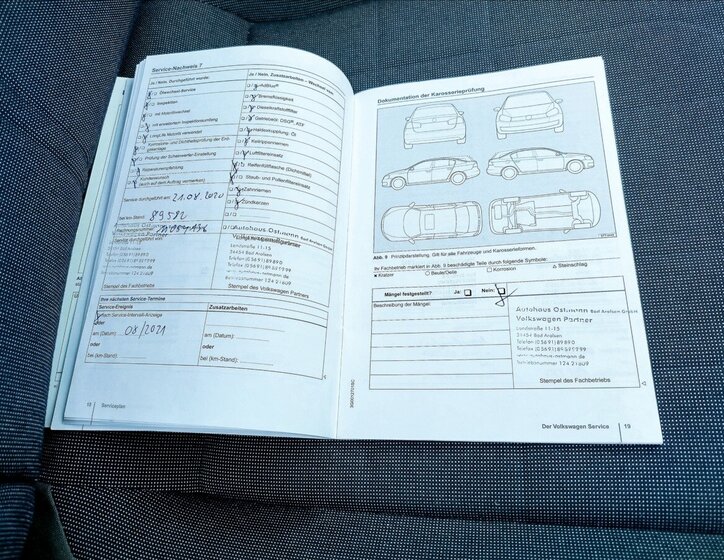 Service-Nachweis 7
Ja / Nein, Durchgeführt wurde:
Ölwechsel-Service
Inspektion
mit Motorölwechsel
mit erweitertem Inspektionsumfang
LongLife Motoröl verwendet
Korrosions- und Dichtheitsprüfung der Erd-
gasanlage
Prüfung der Scheinwerfer-Einstellung
Reparaturempfehlung
Kundenwunsch
(auch auf dem Auftrag vermerken)
Service durchgeführt am: 21.08.2020
bei km-Stand: 89582
Stempel des Volkswagen Partners
Ja / Nein, Zusatzarbeiten – Wechsel von:
AdBlue®
Bremsflüssigkeit
Dieselkraftstofffilter
Getriebeöl: DSG®, ATF
Haldexkupplung, Öl
Keilrippenriemen
Luftfiltereinsatz
Reifenfüllflasche (Dichtmittel)
Staub- und Pollenfiltereinsatz
Zahnriemen
Zündkerzen
Autohaus Ostmann Bad Arolsen GmbH
Landstraße 11-15
34454 Bad Arolsen
Telefon (05691) 89890
Betriebsnummer 124 21809
Stempel des Volkswagen Partners
Ihre nächsten Service-Termine
Service-Ereignis
Zusatzarbeiten
einfach Service-Intervall-Anzeige
am (Datum): 08/2021
oder
bei (km-Stand):
am (Datum):
oder
bei (km-Stand):
18 Serviceplan
Dokumentation der Karosserieprüfung
Abb. 9 Prinzipdarstellung. Gilt für alle Fahrzeuge und Karosserieformen.
Ihr Fachbetrieb markiert in Abb. 9 beschädigte Teile durch folgende Symbole:
× Kratzer ○ Beule/Delle □ Korrosion △ Steinschlag
Mängel festgestellt? Ja: Nein:
Beschreibung der Mängel:
Autohaus Ostmann Bad Arolsen GmbH
Volkswagen Partner
Landstraße 11-15
34454 Bad Arolsen
Telefon (05691) 89890
Betriebsnummer 124 21809
Stempel des Fachbetriebs
Der Volkswagen Service 19